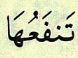 تَنفَعُهَا